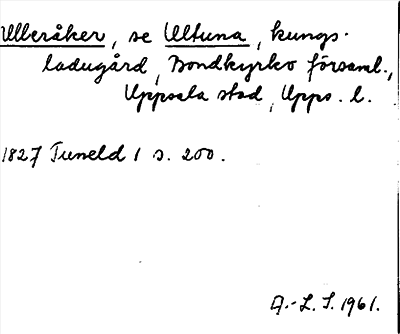 Ulleråker, se Ultuna, kungs-
ladugård, Bondkyrko församl.,
Uppsala stad, Upps. l.
1827 Tuneld 1 s. 200.
A.-L. S. 1961.